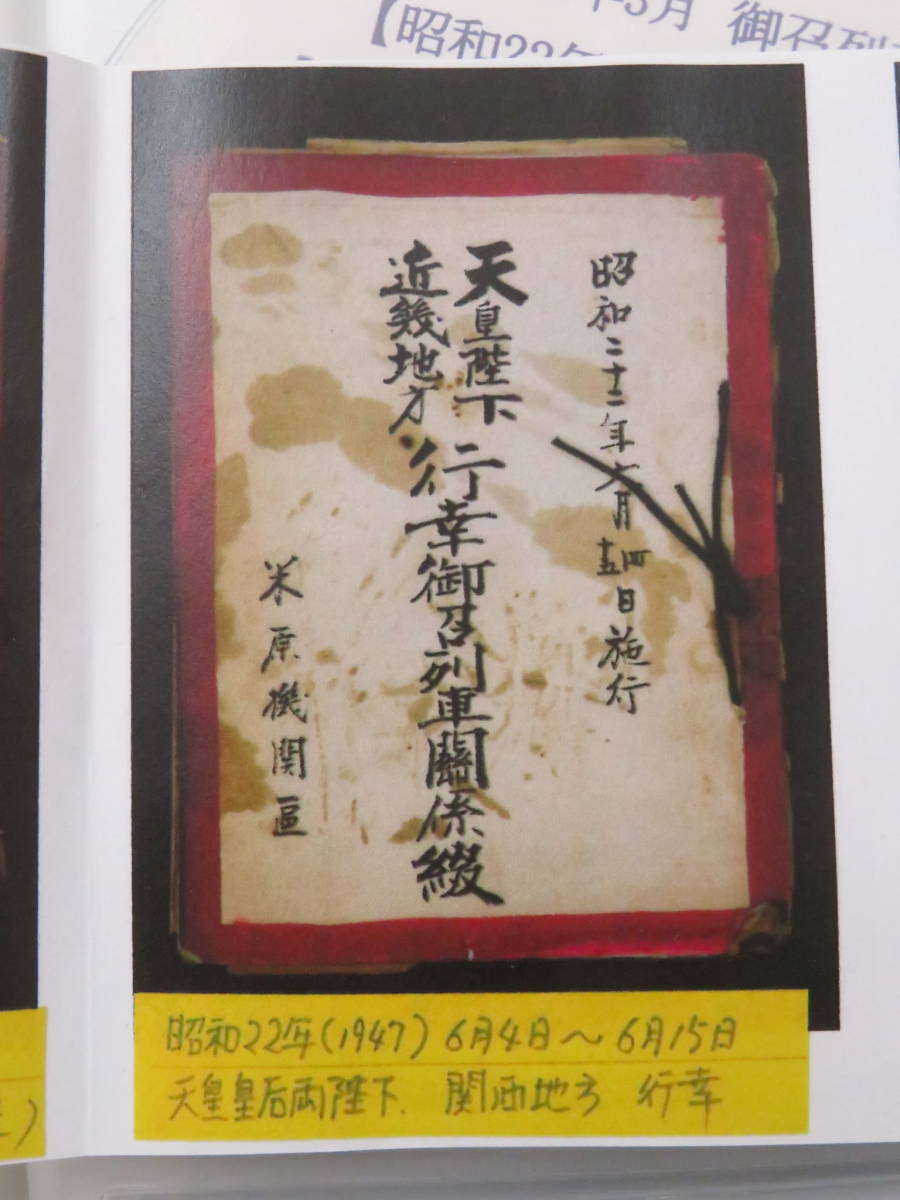 年3月 御召列
【昭和22年
昭和二十二年六月四十五日施行
天皇陛下
近畿地方
行幸御召列車關係綴
米原機関區
昭和22年(1947) 6月4日～6月15日
天皇皇后両陛下、関西地方 行幸
)